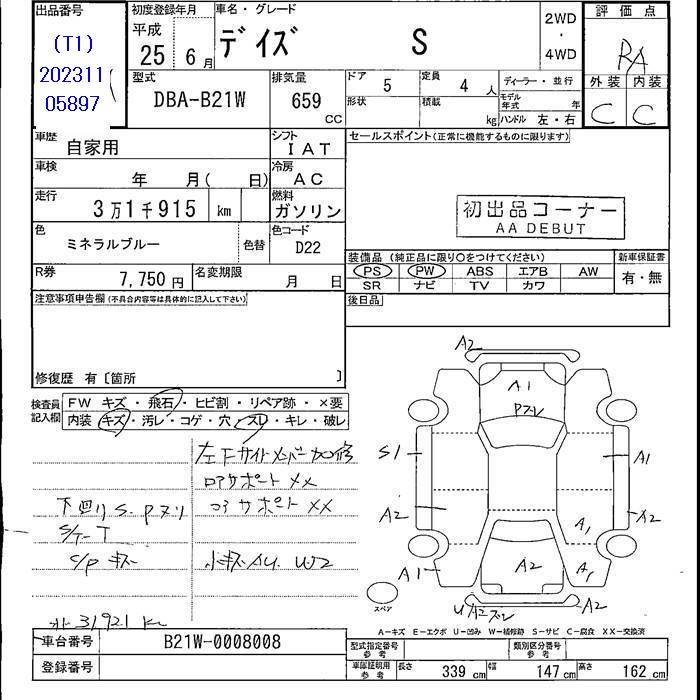 出品番号
(T1)
202311
05897
初度登録年月
平成
25 6月
車名・グレード
デイズ S
2WD
・
4WD
評価点
RA
外装 内装
C C
型式
DBA-B21W
排気量
659
CC
ドア 5
定員 4 人
形状
積載 kg
ディーラー・並行
モデル年式 年
ハンドル 左・右
車歴 自家用
シフト IAT
セールスポイント(正常に機能するものに限ります)
車検 年 月( 日)
冷房 AC
走行 3万1千915 km
燃料 ガソリン
初出品コーナー
AA DEBUT
色 ミネラルブルー
色替
色コード D22
装備品 (純正品に限り〇をつけてください)
新車保証書
PS PW ABS エアB AW
有・無
SR ナビ TV カワ
R券 7,750円
名変期限 月 日
後日品
注意事項申告欄(不具合内容等は具体的に記入して下さい)
修復歴 有〔箇所 〕
検査員記入欄
FW キズ・飛石・ヒビ割・リペア跡・×要
内装 キズ・汚レ・コゲ・穴・スレ・キレ・破レ
左下サイドメンバー加修
ロアサポート XX
下廻り S. Pヌリ
コアサポート XX
S/T-T
C/P キズ
小キズ AU. W2
31921 K
A2
A1
S1
A1
A2
A2
A1
A1
A2
A1
A2
スペア
A-キズ E-エクボ U-凹み W-補修跡 S-サビ C-腐食 XX-交換済
車台番号 B21W-0008008
登録番号
型式指定番号 参考
類別区分番号 参考
車庫証明用 参考
長さ 339cm
幅 147cm
高さ 162cm